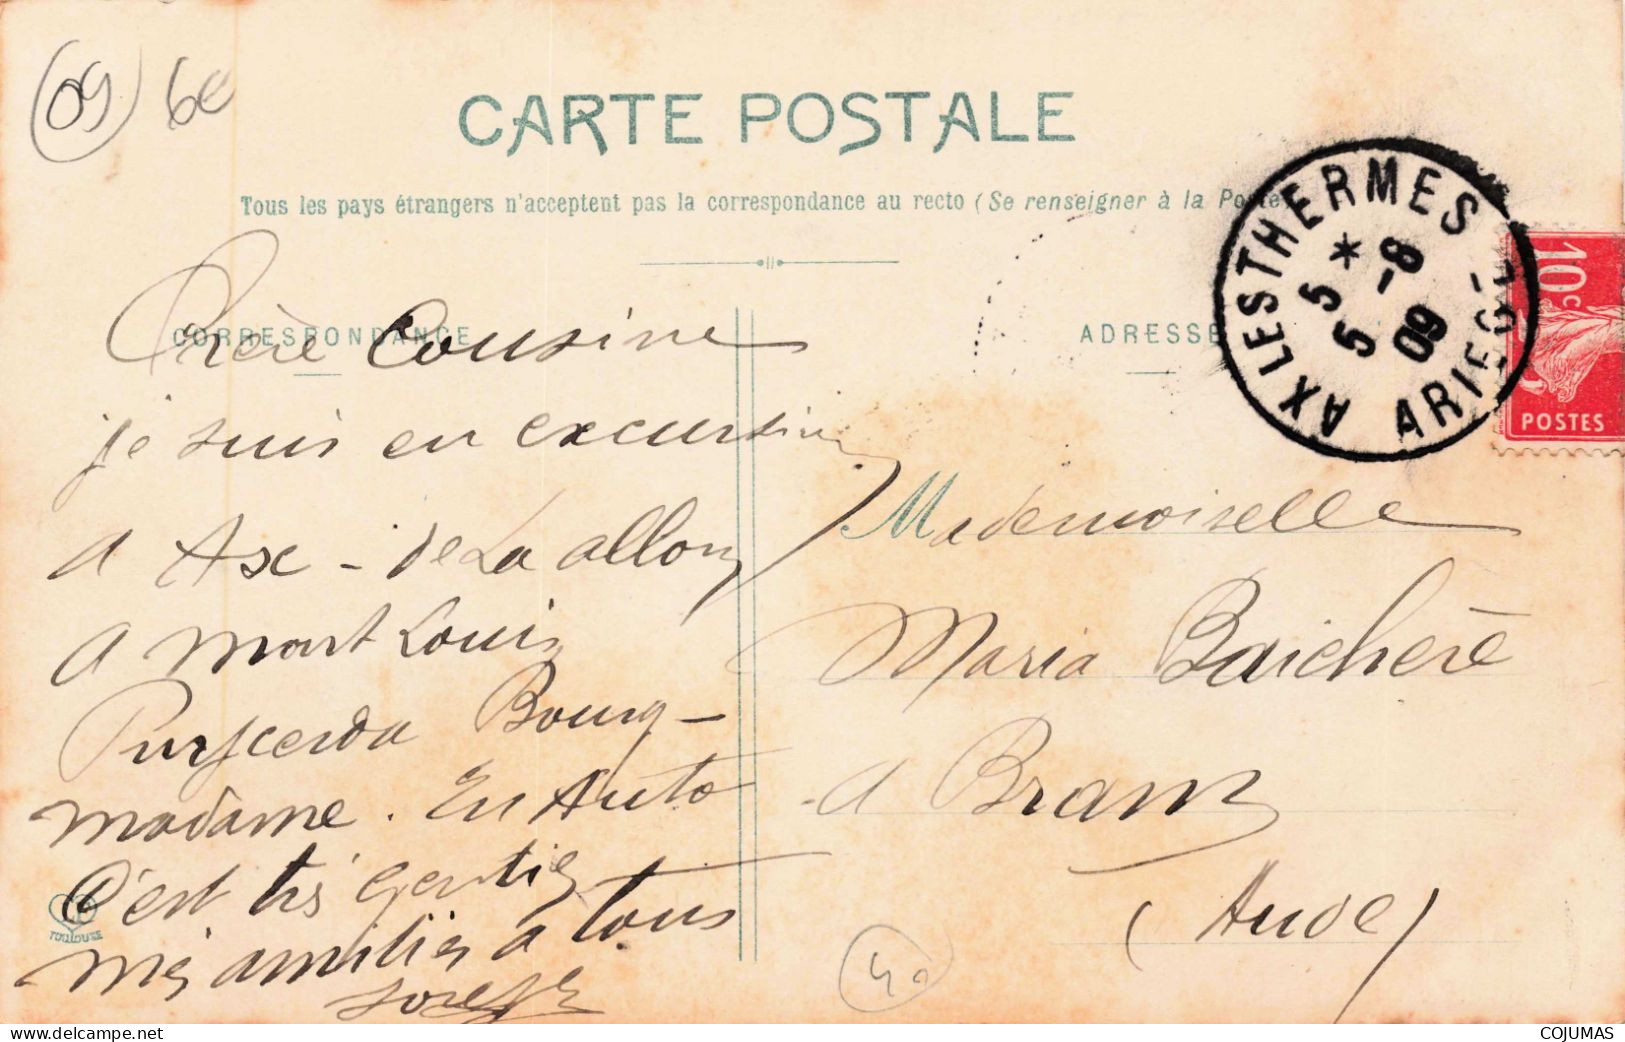 09 6e
CARTE POSTALE
Tous les pays étrangers n'acceptent pas la correspondance au recto (Se renseigner à la Poste)
CORRESPONDANCE
ADRESSE
AX LES THERMES
5 * 5
5 -8
09
ARIEGE
10c
POSTES
Chère Cousine
je suis en excursion
a Ax - de La allons
a Mont Louis
Puycerda Bourg-
madame. En Auto
C'est très gentil
mes amitiés a tous
Joseph
Mademoiselle
Maria Baichère
a Bram
(Aude)
TOULOUSE
40
COJUMAS